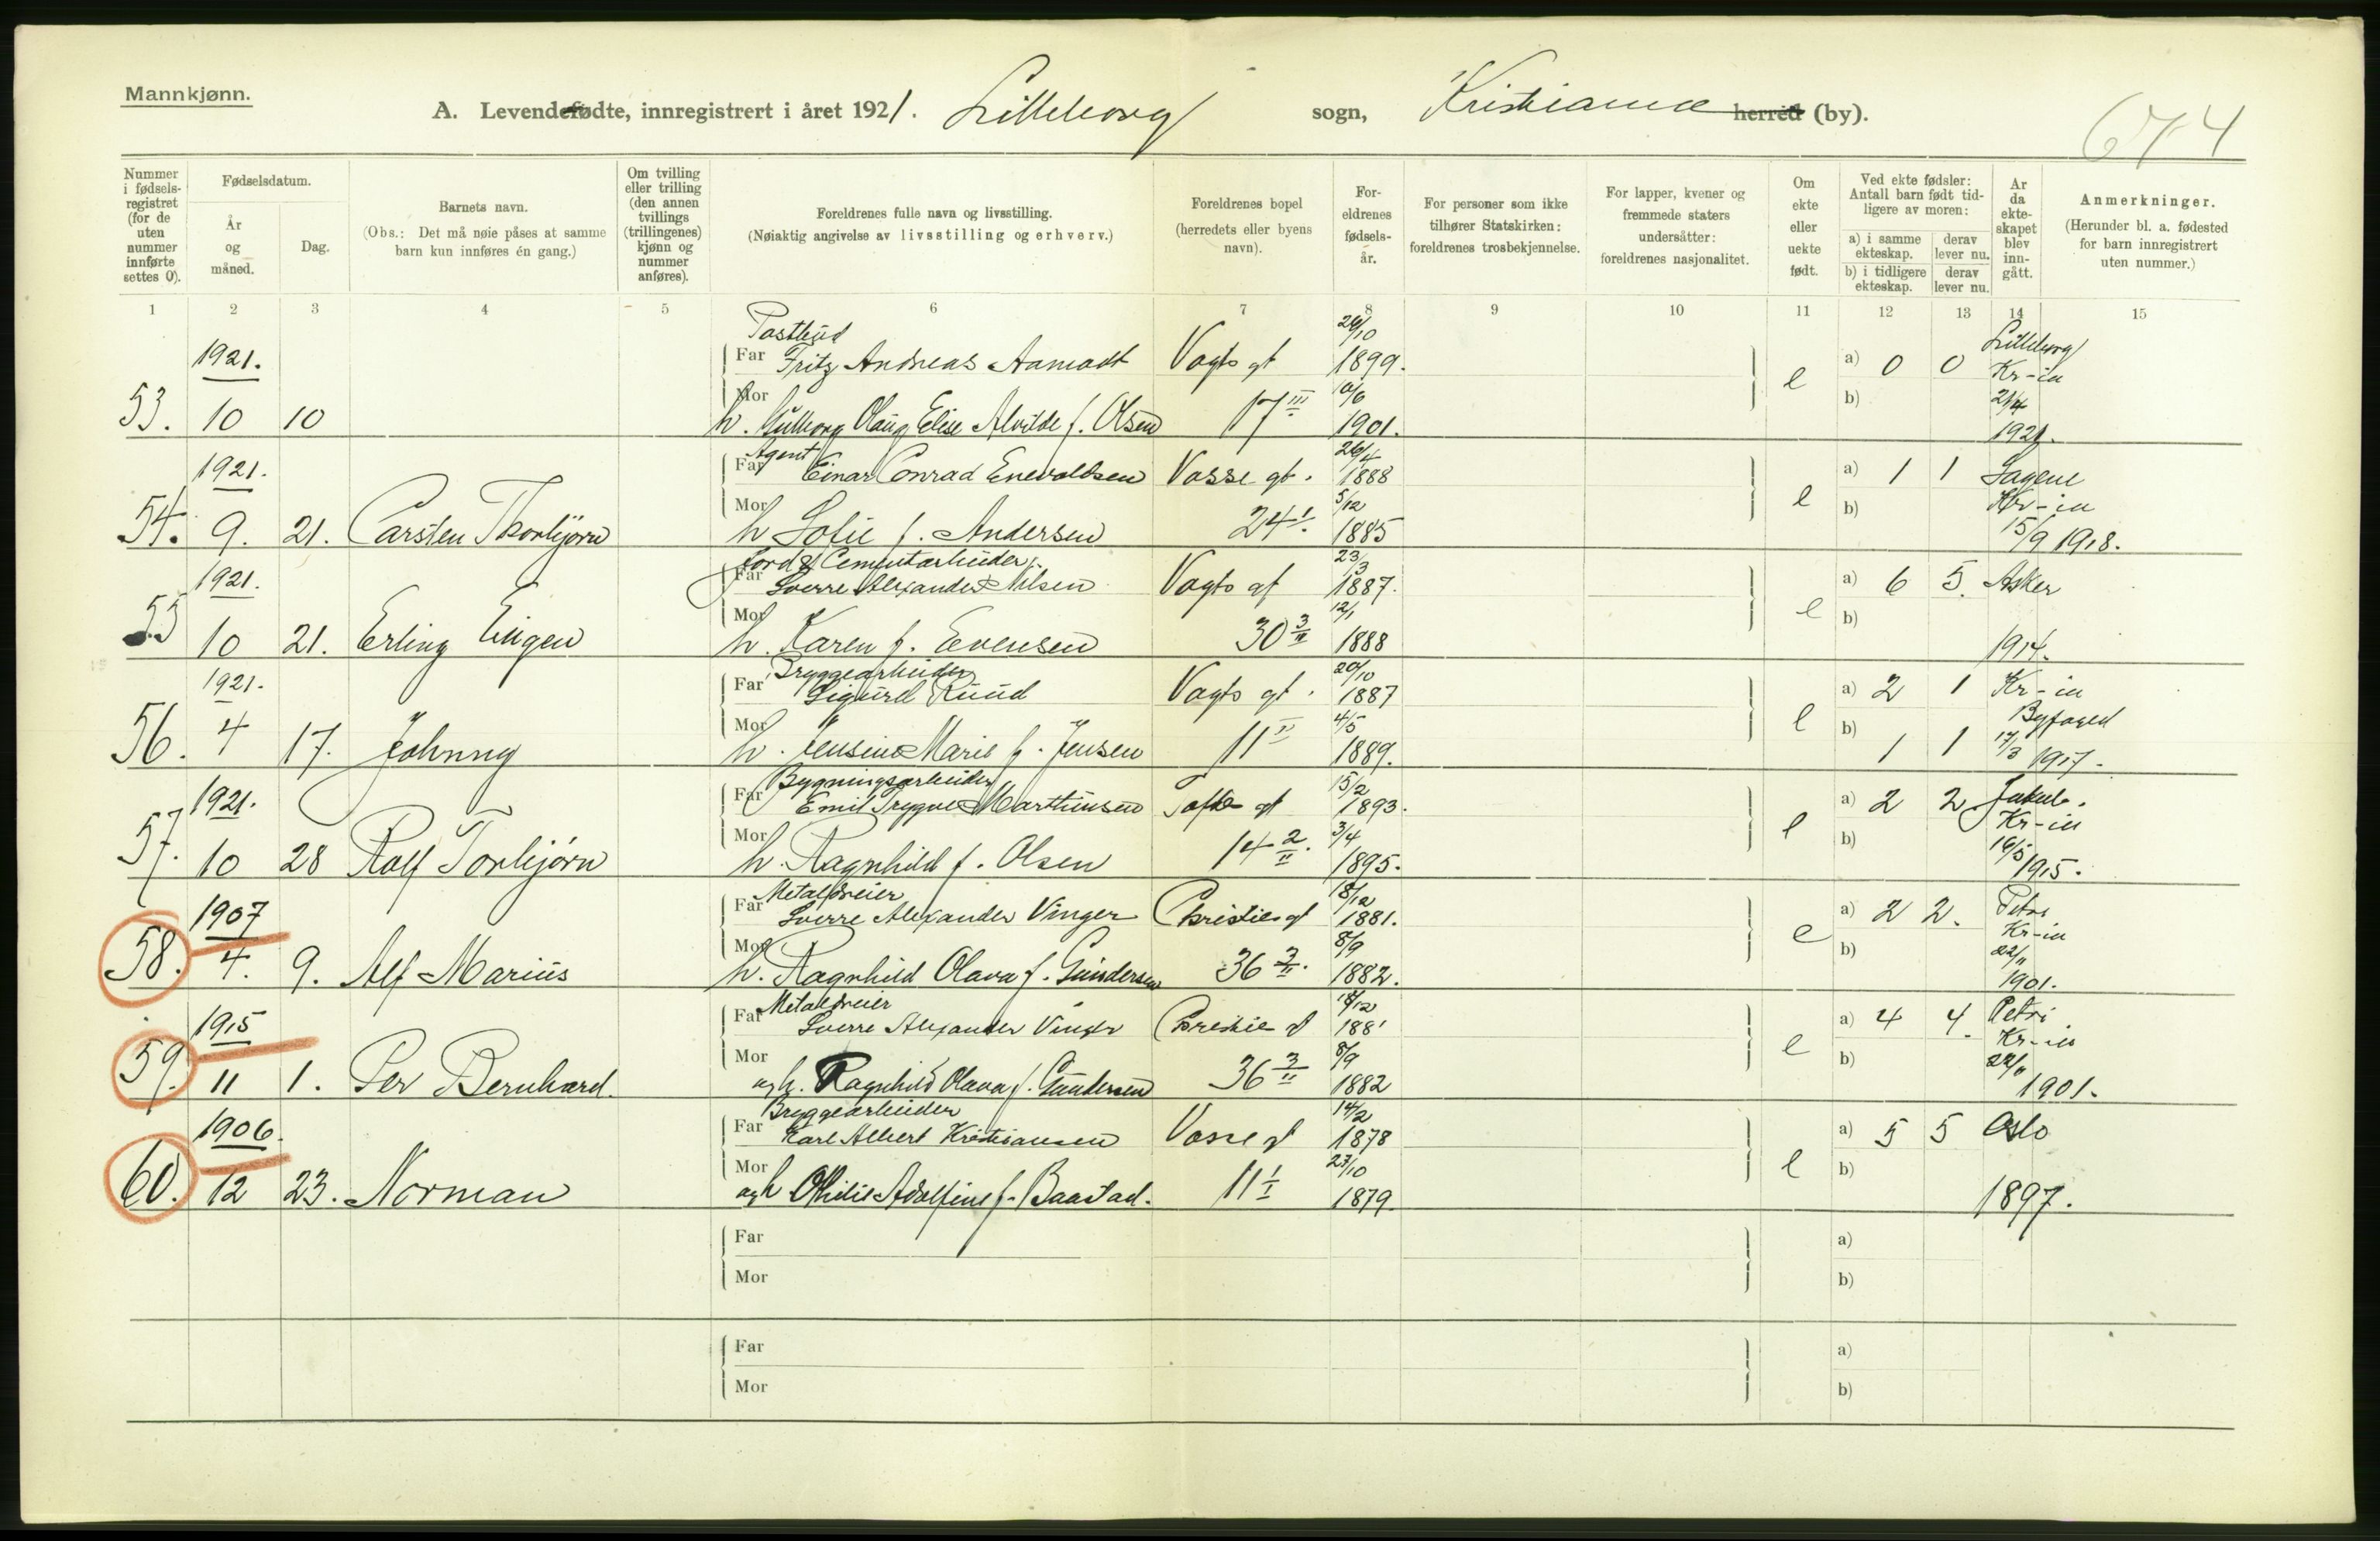 Mannkjønn.
A. Levendefødte, innregistrert i året 1921. Lilleborg sogn, Kristiania herred (by).
674
Nummer i fødselsregistret (for de uten nummer innførte settes 0).
Fødselsdatum.
År og måned.
Dag.
Barnets navn.
(Obs.: Det må nøie påses at samme barn kun innføres én gang.)
Om tvilling eller trilling (den annen tvillings (trillingenes) kjønn og nummer anføres).
Foreldrenes fulle navn og livsstilling.
(Nøiaktig angivelse av livsstilling og erhverv.)
Foreldrenes bopel (herredets eller byens navn).
Foreldrenes fødselsår.
For personer som ikke tilhører Statskirken: foreldrenes trosbekjennelse.
For lapper, kvener og fremmede staters undersåtter: foreldrenes nasjonalitet.
Om ekte eller uekte født.
Ved ekte fødsler: Antall barn født tidligere av moren:
a) i samme ekteskap. derav lever nu.
b) i tidligere ekteskap. derav lever nu.
Ar da ekteskapet blev inngått.
Anmerkninger.
(Herunder bl. a. fødested for barn innregistrert uten nummer.)
1 2 3 4 5 6 7 8 9 10 11 12 13 14 15
Postbud 24/10 Lilleborg
1921. Far Fritz Andreas Aamodt Vogts gt 1899. a) 0 0 Kr-ia
Mor 10/6 e b) 21/4
53. 10 10 h. Gulborg Olaug Elise Alvilde f. Olsen 17 III 1901. 1921.
Agent 26/4
1921. Far Einar Conrad Enevoldsen Vosse gt. 1888 a) 1 1 Sagene
Mor 5/12 e b) Kr-ia
54. 9. 21. Carsten Thorbjørn h Sofie f. Andersen 24 I. 1885 15/9 1918.
Jord & Cementarbeider. 23/3
1921. Far Sverre Alexander Nilsen Vogts gt 1887. a) 6 5. Asker
Mor 12/1 e b)
55 10 21. Erling Eugen h. Karen f. Evensen 30 3/II 1888 1914.
Bryggearbeider 20/10
1921. Far Sigurd Ruud Vogts gt. 1887 a) 2 1 Kr-ia
Mor 4/5 e b) Byfoged
56. 4 17. Johnny h. Jensine Marie f. Jensen 11 II 1889. 1 1 17/3 1917.
Bygningsarbeider 15/2
1921. Far Emil Trygve Marthinsen Tofte gt 1893. a) 2 2 Jakob.
Mor 3/4 e b) Kr-ia
57. 10 28 Rolf Torbjørn h. Ragnhild f. Olsen 14 2/II. 1895. 16/5 1915.
Metaldreier 18/12
1907 Far Sverre Alexander Vinger Christies gt 1881. a) 2 2. Petri
Mor 8/9 e b) Kr-ia 22/11
58. 4. 9. Alf Marius h. Ragnhild Olava f. Gundersen 36 3/II. 1882. 1901.
Metaldreier 18/12
1915 Far Sverre Alexander Vinger Christie gt 1881 a) 4 4. Petri
Mor 8/9 e b) Kr-ia 22/11
59. 11 1. Per Bernhard. og h. Ragnhild Olava f. Gundersen 36 3/II 1882 1901.
Bryggearbeider 14/2
1906. Far Karl Albert Kristiansen Vosse gt 1878 a) 5 5 Oslo
Mor 23/10 e b)
60. 12 23. Norman og h Othilie Adolfine f. Baastad. 11 1/I 1879. 1897.
Far a)
Mor b)
Far a)
Mor b)